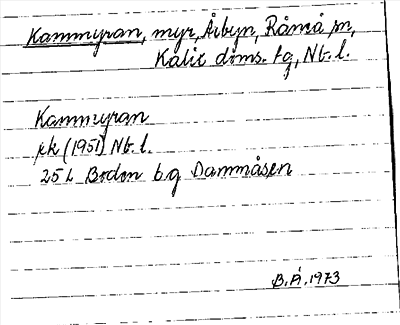 Kammyran, myr, Årbyn, Råneå sn,
Kalix doms. tg, Nb. l.
Kammyran
xk (1951) Nb. l.
25 L Boden b g Dammåsen
B.Å. 1973